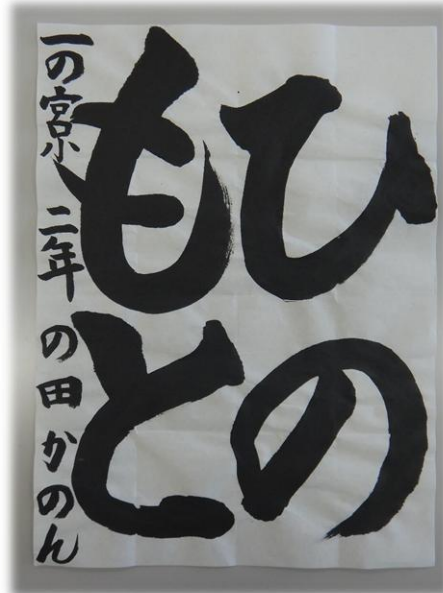 ひの
もと
一の宮小 二年 の田かのん